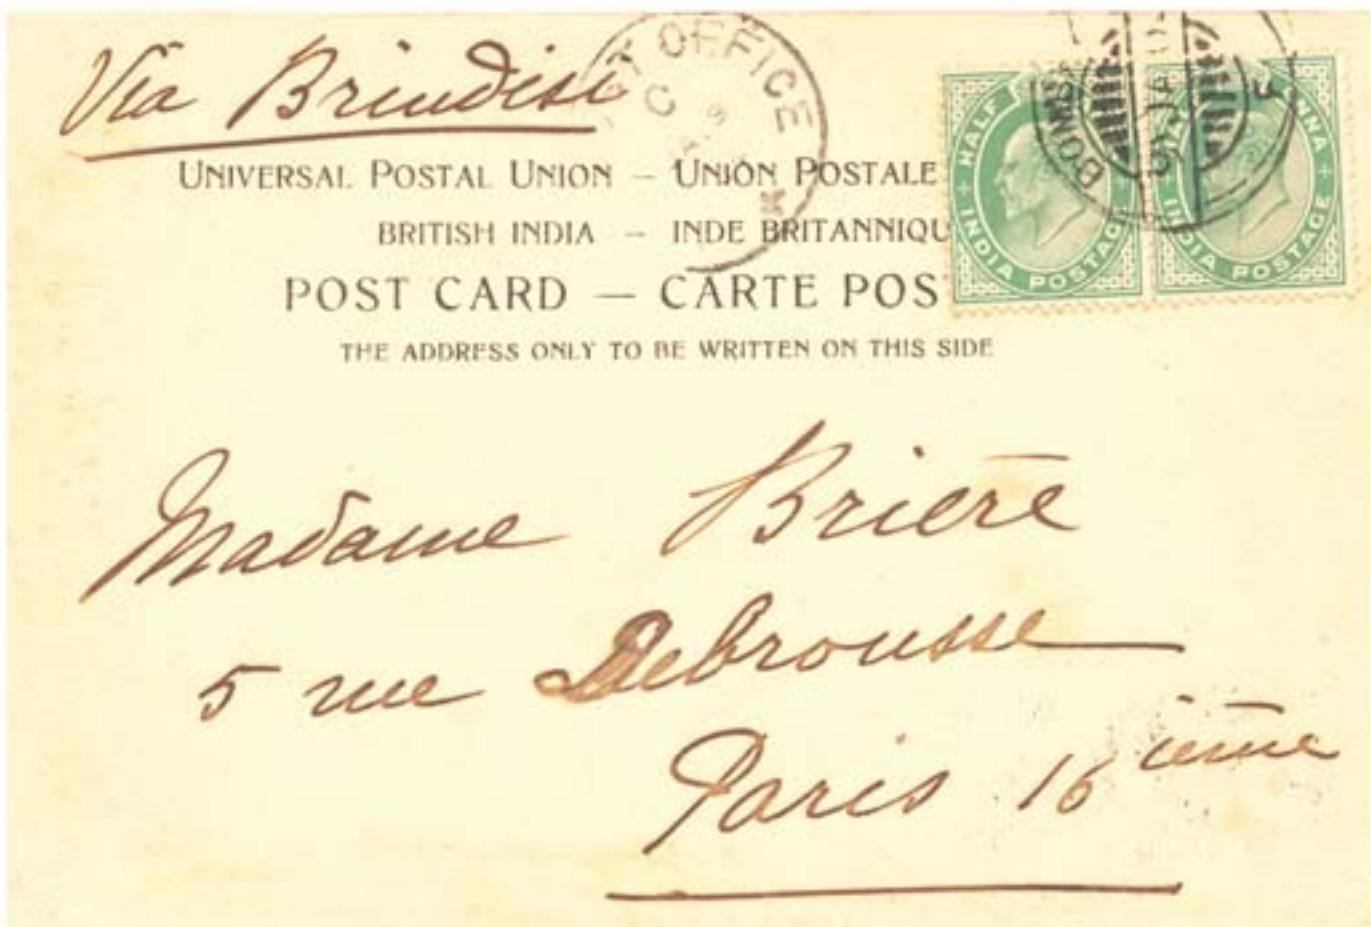 Via Brindisi
OFFICE
UNIVERSAL POSTAL UNION – UNION POSTALE
BRITISH INDIA – INDE BRITANNIQU
POST CARD — CARTE POS
THE ADDRESS ONLY TO BE WRITTEN ON THIS SIDE
HALF
INDIA POSTAGE
BOMBA
INDIA POSTAGE
Madame Brière
5 rue Debrousse
Paris 16 ième